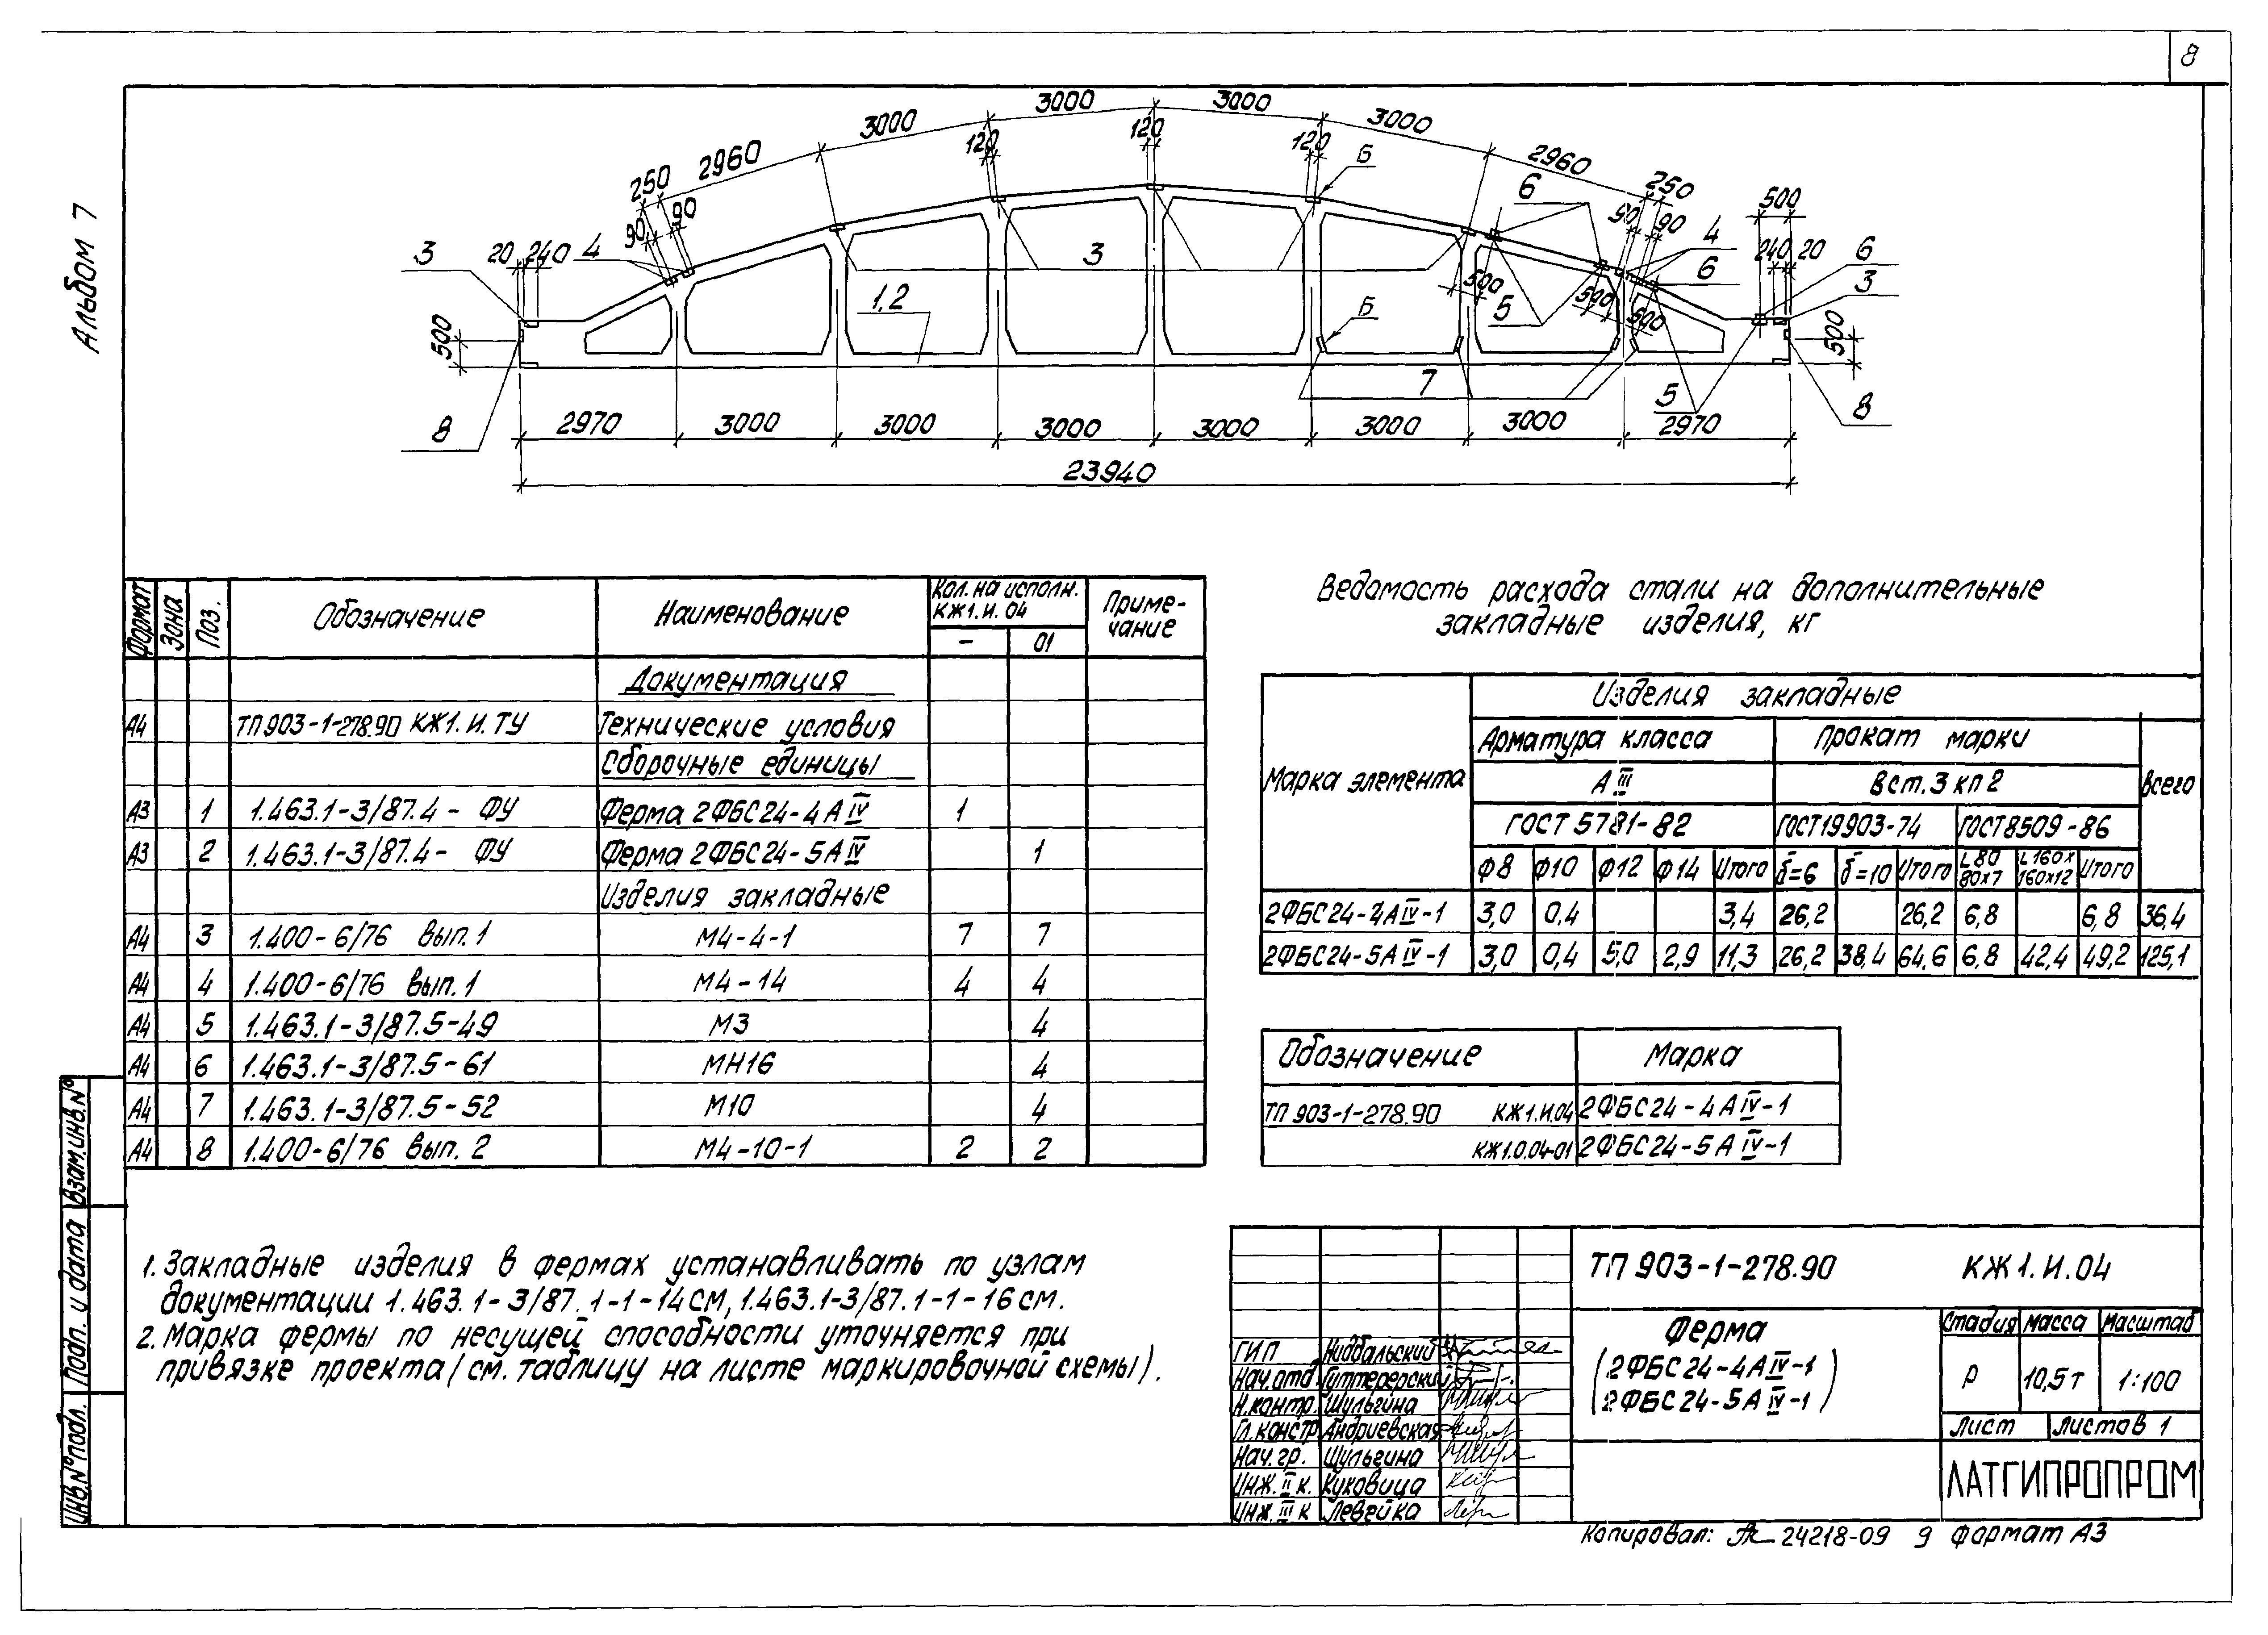 8
Альбом 7
3000 3000
3000 3000
120 120 120 Б
2960 2960
250 250
90 90 90 90
6 500
3 20 240 4 3 4 6 240 20 6 3
1,2 500 5 500 500
500 Б 500
8 7 5 8
2970 3000 3000 3000 3000 3000 3000 2970
23940
Формат Зона Поз. Обозначение Наименование Кол. на исполн. КЖ1.И.04 Приме-чание
— 01
Документация
А4 ТП 903-1-278.90 КЖ1.И.ТУ Технические условия
Сборочные единицы
А3 1 1.463.1-3/87.4- ФУ Ферма 2ФБС24-4АIV 1
А3 2 1.463.1-3/87.4- ФУ Ферма 2ФБС24-5АIV 1
Изделия закладные
А4 3 1.400-6/76 вып. 1 М4-4-1 7 7
А4 4 1.400-6/76 вып. 1 М4-14 4 4
А4 5 1.463.1-3/87.5-49 М3 4
А4 6 1.463.1-3/87.5-61 МН16 4
А4 7 1.463.1-3/87.5-52 М10 4
А4 8 1.400-6/76 вып. 2 М4-10-1 2 2
Ведомость расхода стали на дополнительные
закладные изделия, кг
Марка элемента Изделия закладные Всего
Арматура класса Прокат марки
АIII Вст.3 кп 2
ГОСТ 5781-82 ГОСТ19903-74 ГОСТ8509-86
Ф8 Ф10 Ф12 Ф14 Итого δ=6 δ=10 Итого L80 80х7 L160х 160х12 Итого
2ФБС24-4АIV-1 3,0 0,4 3,4 26,2 26,2 6,8 6,8 36,4
2ФБС24-5АIV-1 3,0 0,4 5,0 2,9 11,3 26,2 38,4 64,6 6,8 42,4 49,2 125,1
Обозначение Марка
ТП 903-1-278.90 КЖ1.И.04 2ФБС24-4АIV-1
КЖ1.0.04-01 2ФБС24-5АIV-1
1. Закладные изделия в фермах устанавливать по узлам
документации 1.463.1-3/87.1-1-14СМ, 1.463.1-3/87.1-1-16СМ.
2. Марка фермы по несущей способности уточняется при
привязке проекта (см. таблицу на листе маркировочной схемы).
Взам.инв.№
Подп. и дата
Инв.№ подл.
ТП 903-1-278.90 КЖ1.И.04
Ферма
(2ФБС24-4АIV-1
2ФБС24-5АIV-1)
Стадия Масса Масштаб
Р 10,5т 1:100
Лист Листов 1
ЛАТГИПРОПРОМ
ГИП Нидбальский
Нач.отд. Гуттерерский
Н.контр. Шульгина
Гл.констр. Андриевская
Нач.гр. Шульгина
Инж. II к. Куковица
Инж. III к Левейка
Копировал: 24218-09 9 формат А3